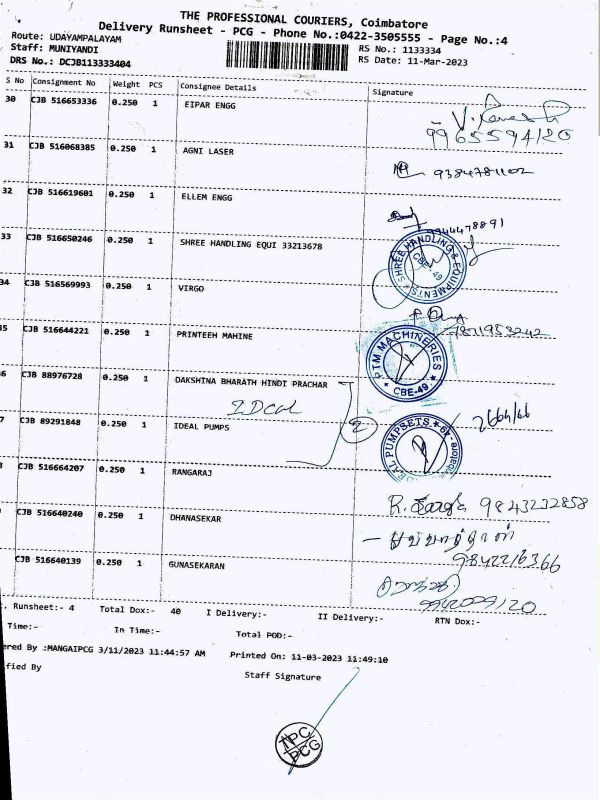 THE PROFESSIONAL COURIERS, Coimbatore
Delivery Runsheet - PCG - Phone No.:0422-3505555 - Page No.:4
Route: UDAYAMPALAYAM
Staff: MUNIYANDI
RS No.: 1133334
DRS No.: DCJB113333404
RS Date: 11-Mar-2023
S No Consignment No Weight PCS Consignee Details Signature
30 CJB 516653336 0.250 1 EIPAR ENGG
9965594120
31 CJB 516068385 0.250 1 AGNI LASER
9384781102
32 CJB 516619601 0.250 1 ELLEM ENGG
9944478891
33 CJB 516650246 0.250 1 SHREE HANDLING EQUI 33213678
SHREE HANDLING & EQUIPMENTS CBE - 49
34 CJB 516569993 0.250 1 VIRGO
35 CJB 516644221 0.250 1 PRINTEEH MAHINE
PTM MACHINERIES * CBE-49 *
6 CJB 88976728 0.250 1 DAKSHINA BHARATH HINDI PRACHAR
IDCOL
2
7 CJB 89291848 0.250 1 IDEAL PUMPS
PUMPSETS
CJB 516664207 0.250 1 RANGARAJ
9843232858
CJB 516640240 0.250 1 DHANASEKAR
9842216366
CJB 516640139 0.250 1 GUNASEKARAN
. Runsheet:- 4 Total Dox:- 40 I Delivery:- II Delivery:- RTN Dox:-
Time:- In Time:- Total POD:-
ered By :MANGAIPCG 3/11/2023 11:44:57 AM Printed On: 11-03-2023 11:49:10
ified By Staff Signature
TPC
PCG